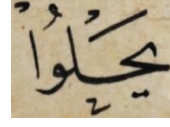 يَحْلُوا